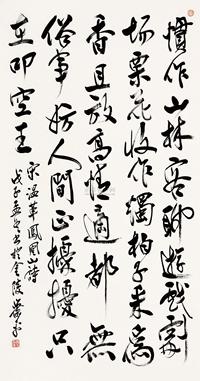 慣作山林客聊遊戲劇
場栗花收作燭柏子采為
香且放高情適都無
俗事妨人間正擾擾只
在叩空王
宋溫革鳳凰山詩
戊子孟冬書於金陵